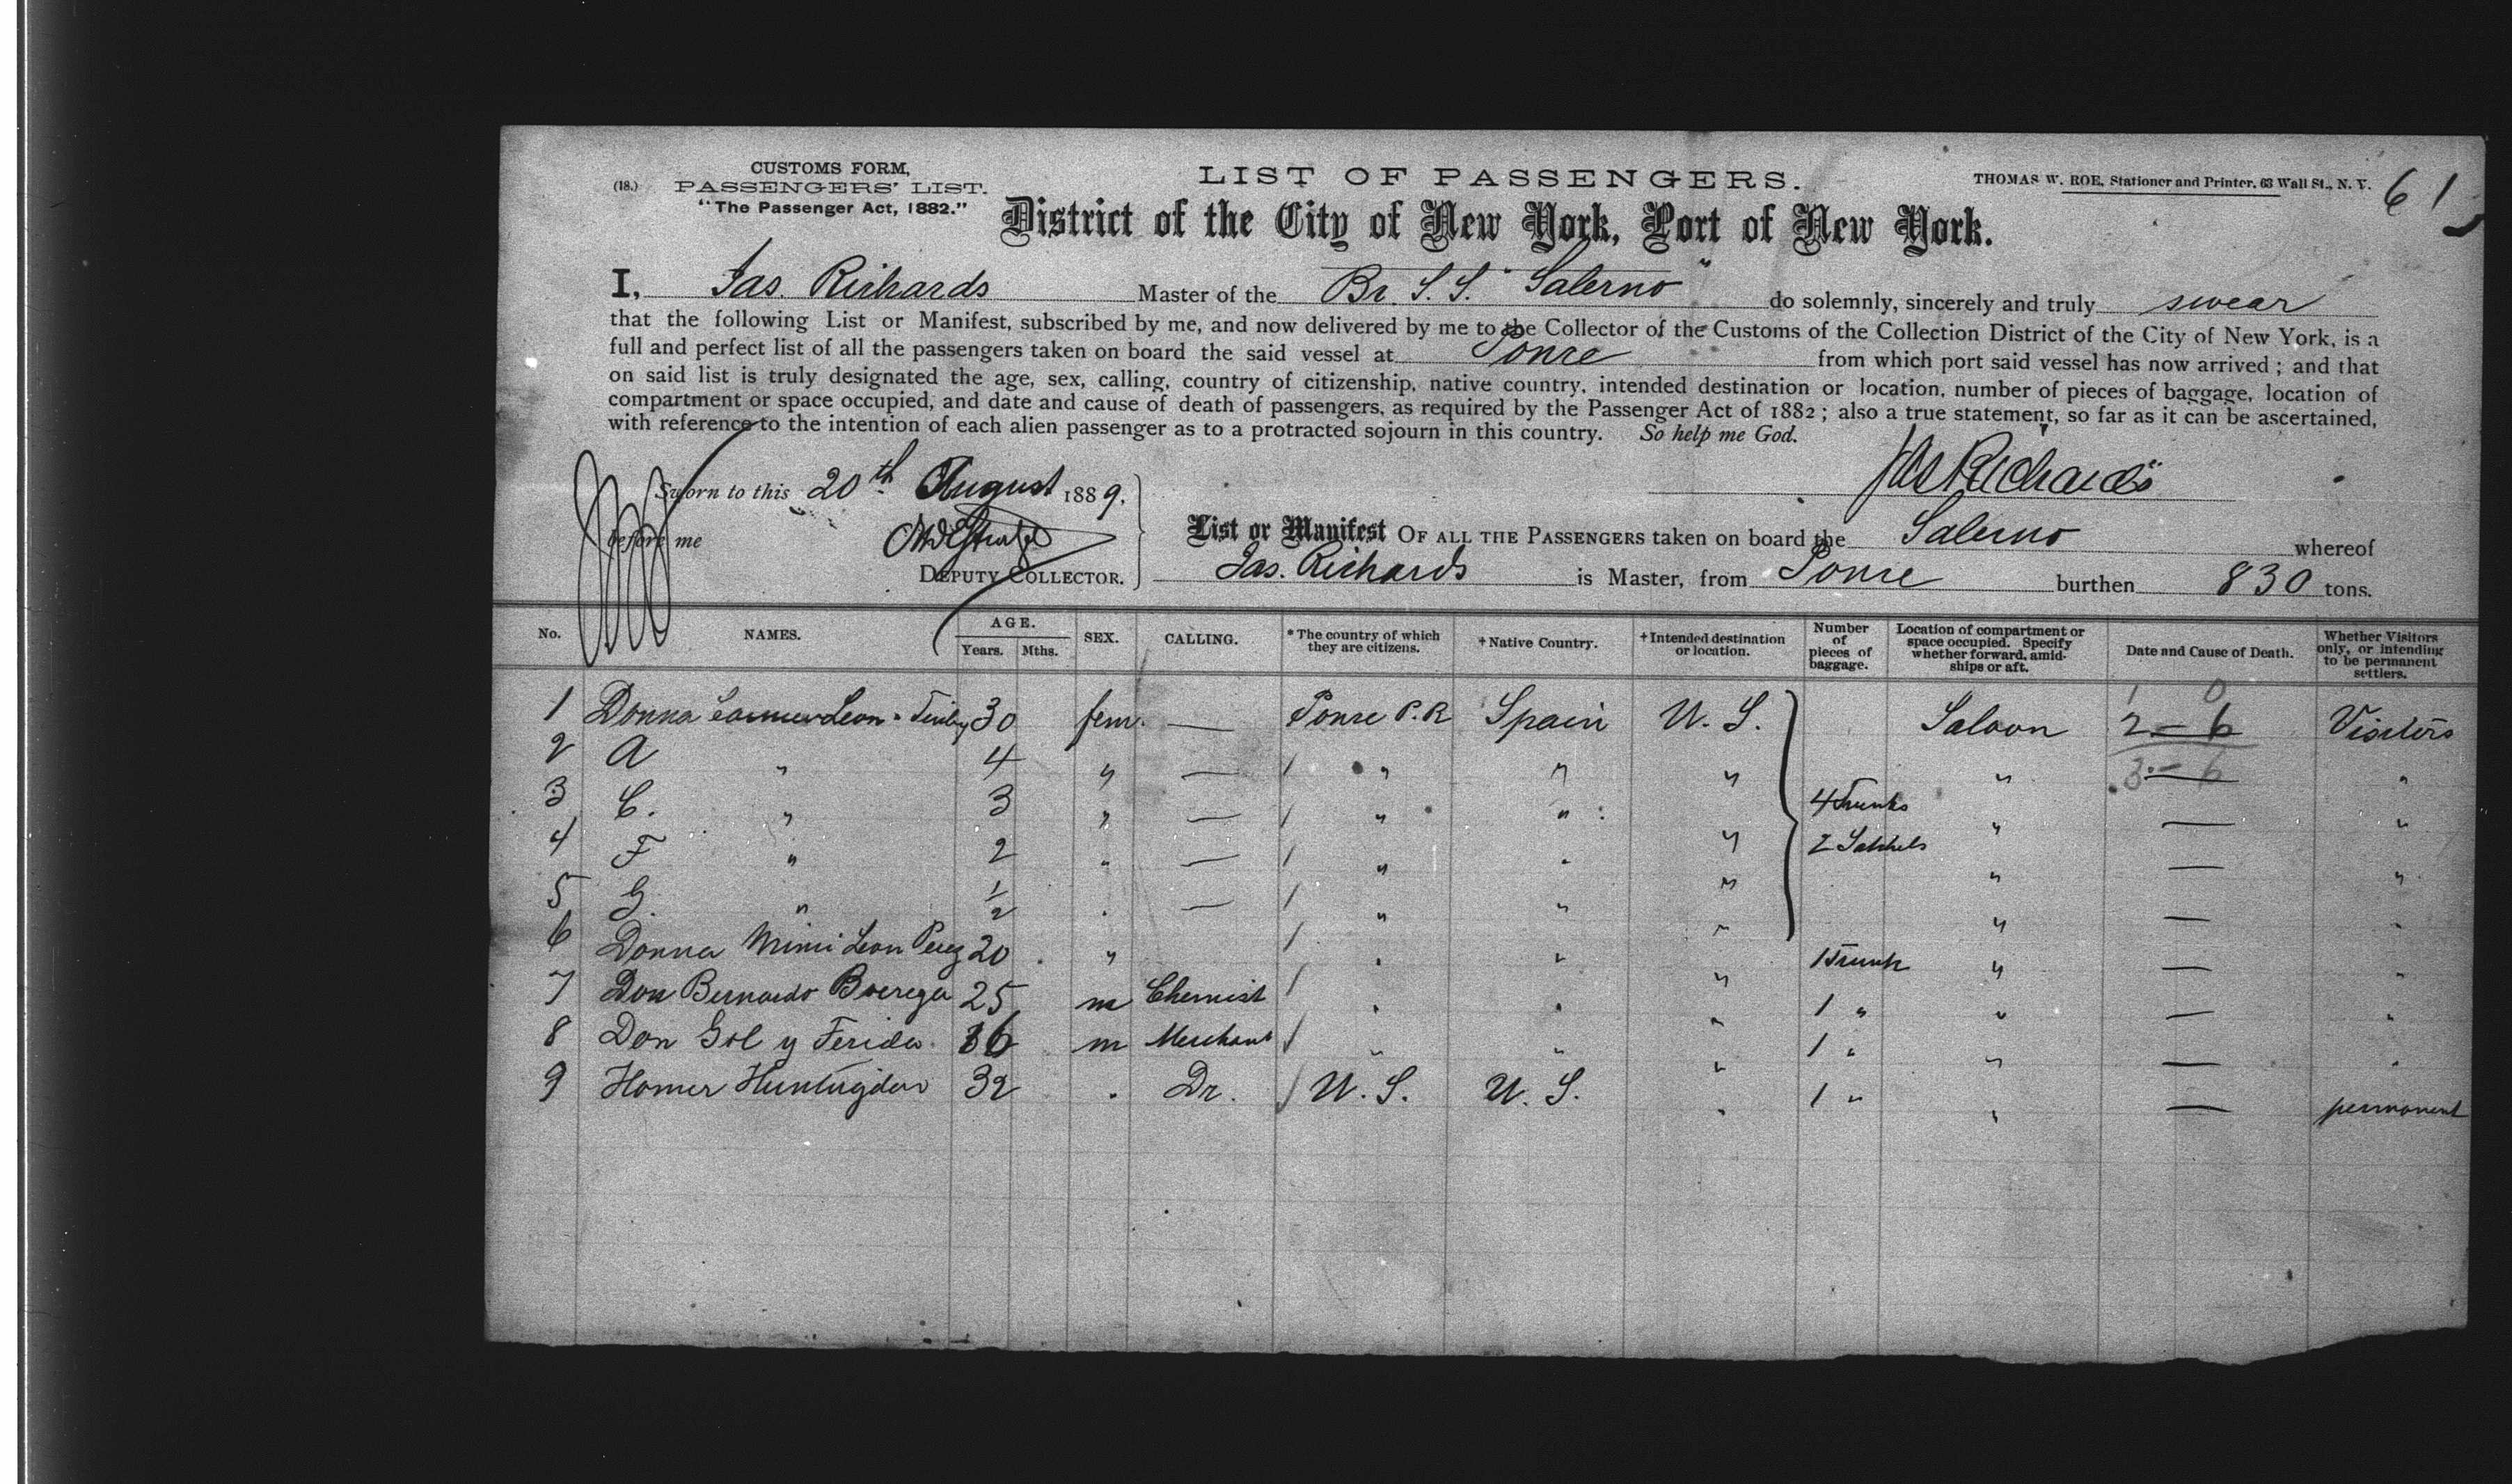 CUSTOMS FORM,
(18.) PASSENGERS' LIST.
"The Passenger Act, 1882."
LIST OF PASSENGERS.
THOMAS W. ROE, Stationer and Printer, 63 Wall St., N. Y.
61
District of the City of New York, Port of New York.
I, Jas. Richards Master of the Br. S.S. "Salerno" do solemnly, sincerely and truly swear
that the following List or Manifest, subscribed by me, and now delivered by me to the Collector of the Customs of the Collection District of the City of New York, is a
full and perfect list of all the passengers taken on board the said vessel at Ponce from which port said vessel has now arrived; and that
on said list is truly designated the age, sex, calling, country of citizenship, native country, intended destination or location, number of pieces of baggage, location of
compartment or space occupied, and date and cause of death of passengers, as required by the Passenger Act of 1882; also a true statement, so far as it can be ascertained,
with reference to the intention of each alien passenger as to a protracted sojourn in this country. So help me God.
Jas Richards
Sworn to this 20th August 1889.
before me
DEPUTY COLLECTOR.
List or Manifest OF ALL THE PASSENGERS taken on board the Salerno whereof
Jas. Richards is Master, from Ponce burthen 830 tons.
No. NAMES. AGE. Years. Mths. SEX. CALLING. *The country of which they are citizens. †Native Country. †Intended destination or location. Number of pieces of baggage. Location of compartment or space occupied. Specify whether forward, amidships or aft. Date and Cause of Death. Whether Visitors only, or intending to be permanent settlers.
1 Donna Leon 30 fem. — Ponce P.R Spain U.S. Saloon 2 — 6 Visitors
2 A " 4 " — / " " " " 3 — 6 "
3 C. " 3 " — / " " " 4 Trunks " — "
4 F " 2 " — / " " " 2 Satchels " — "
5 G. " 1/2 " — / " " " " — "
6 Donna Mimi Leon Perez 20 " / " " " 1 Trunk " — "
7 Don Bernardo 25 m Chemist / " " " 1 " " — "
8 Don Gol y 36 m Merchant / " " " 1 " " — "
9 Homer Huntingdon 32 " Dr. / U.S. U.S. " 1 " " — permanent